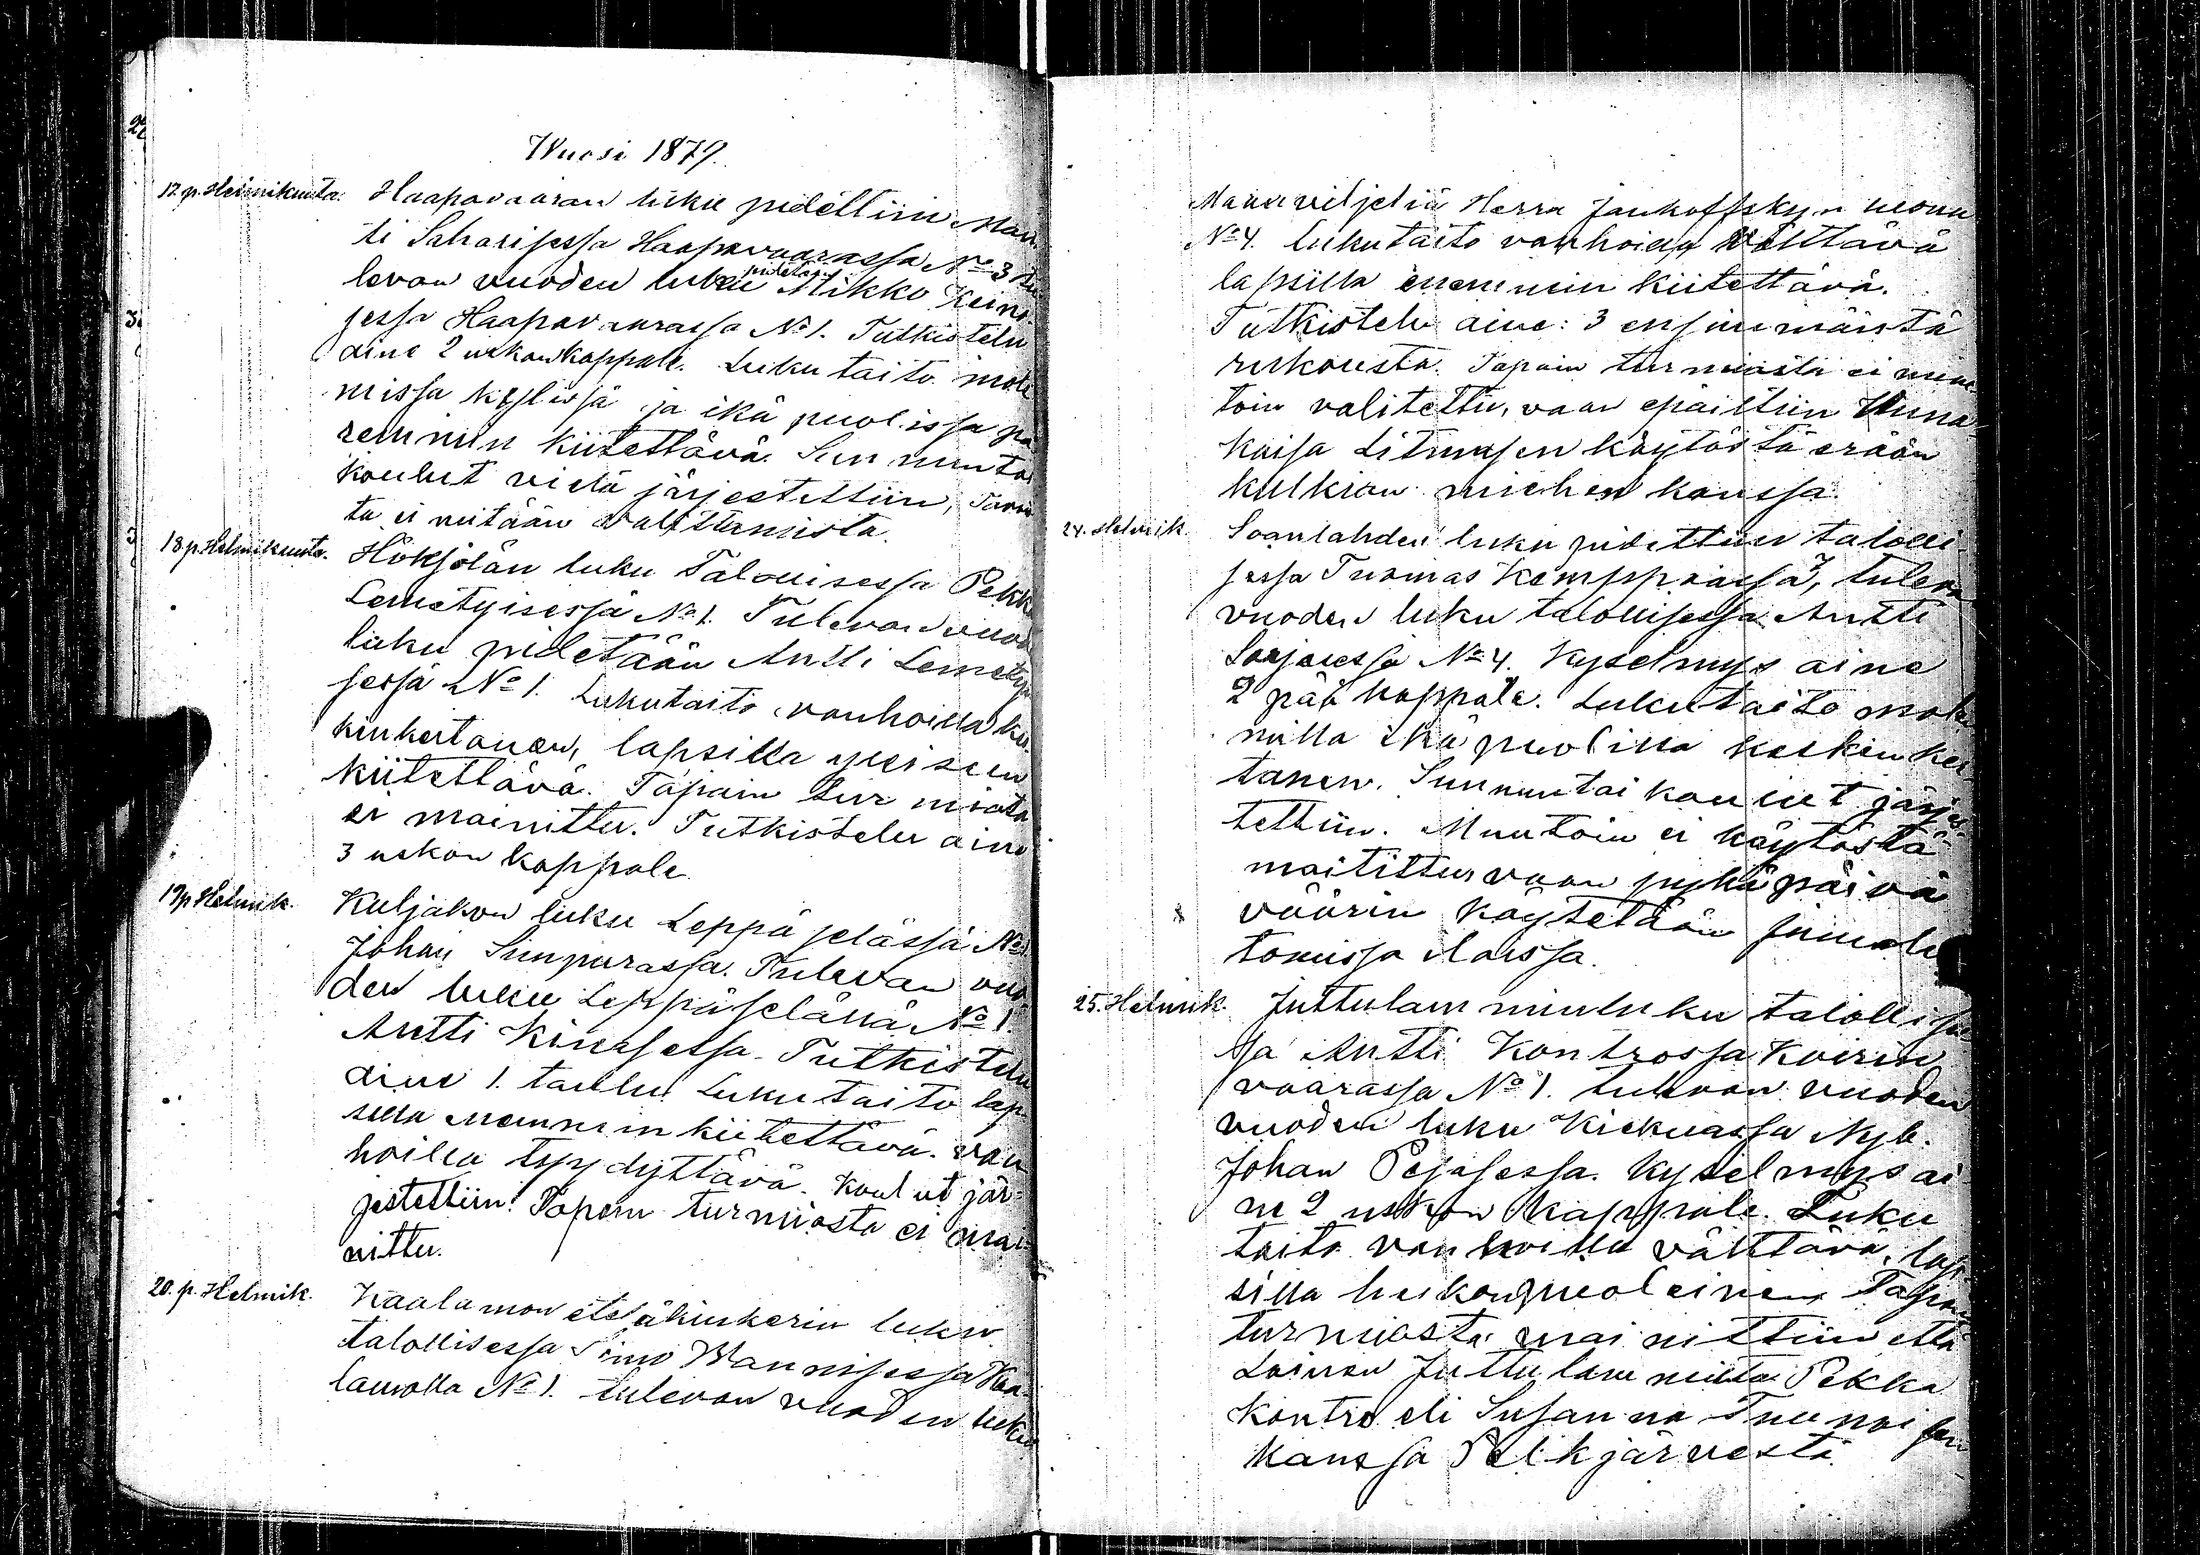 Wuosi 1879.
17.p. Helmikuuta. Haapavaaran luku pidettiin Mar
ti Saharisessa Haapavaarassa No 3 tu
levan vuoden luku pidetään Mikko Keino
sessa Haapavaarassa No 1. Tutkistelu
aine 2 uskonkappale. Luku taito mole
missa kylissä ja ikä puolissa pa
remmin kiitettävä. Sun nunta
koulut vielä järjestettiin, Tavoi
ta ei mitään valittamista.
18 p. Helmikuuta. Hökjölän luku Talouisessa Pekk
Lemetyisessä No 1. Tulevan vuod
luku pidetään Antti Lemety
sessä No 1. Lukutaito vanhoilla kes
kinkertanen, lapsilla yleiseen
kiitettävä. Tapain tur miosta
ei mainittu. Tutkistelu aine
3 uskon kappale
19p Helmik. Kuljakon luku Leppäselässä No
Johan Simpurassa. Tulevan vuo
den luku Leppäselässä No 1.
Antti Kinasessa. Tutkistelu
aine 1. taulu Luku taito lap
silla enemmin kiitettävä. van
hoilla tyydyttävä. Koulut jär-
jestettiin. Tapain turmiosta ei mai
nittu.
20. p. Helmik. Kaalamon etsäkinkerin luku
talollisessa Simo Wannisessa Kaa-
lamolla No 1. tulevan vuoden luku
Maanviljeliä Herra Jankoffskyn luona
No 4. lukutaito vanhoilla Wälttävä
lapsilla enemmin kiitettävä.
Tutkistelu aine: 3 ensimmäistä
rukousta. Tapain turmiosta ei muu
toin valitettu, vaan epäiltiin Anna
Kaisa Litmasen käytöstä erään
kulkian miehen kanssa.
24. Helmik. Soanlahden luku pidettiin talolli
sessa Tuomas Kemppaassa 7, tuleva
vuoden luku talollisessa Antti
Sorjosessa No 4. Kyselmys aine
2 pää kappale. Lukutaito mole
milla ikä puolilla keskinker
tanen. Sunnuntai koulut järjes-
tettiin. Muutoin ei käytöstä
maitittu vaan pyhäpäivä
väärin käytetään jumala
tomissa iloissa.
25. Helmik. Juttulammin luku talollises
sa Antti Kontrossa Koirin
vaarassa No 1. tulevan vuoden
vuoden luku Kiekuassa Nyb.
Johan Pesosessa. Kyselmys ai-
ne 2 uskon kappale. Luku
taito vanhoilla välttävä, lap-
silla heikonpuoleinen Tapain
turmiosta mainittiin että
Loinen Juttulammilta Pekka
Kontro eli Susanna Tuunaisen
kanssa Pelkjärvestä